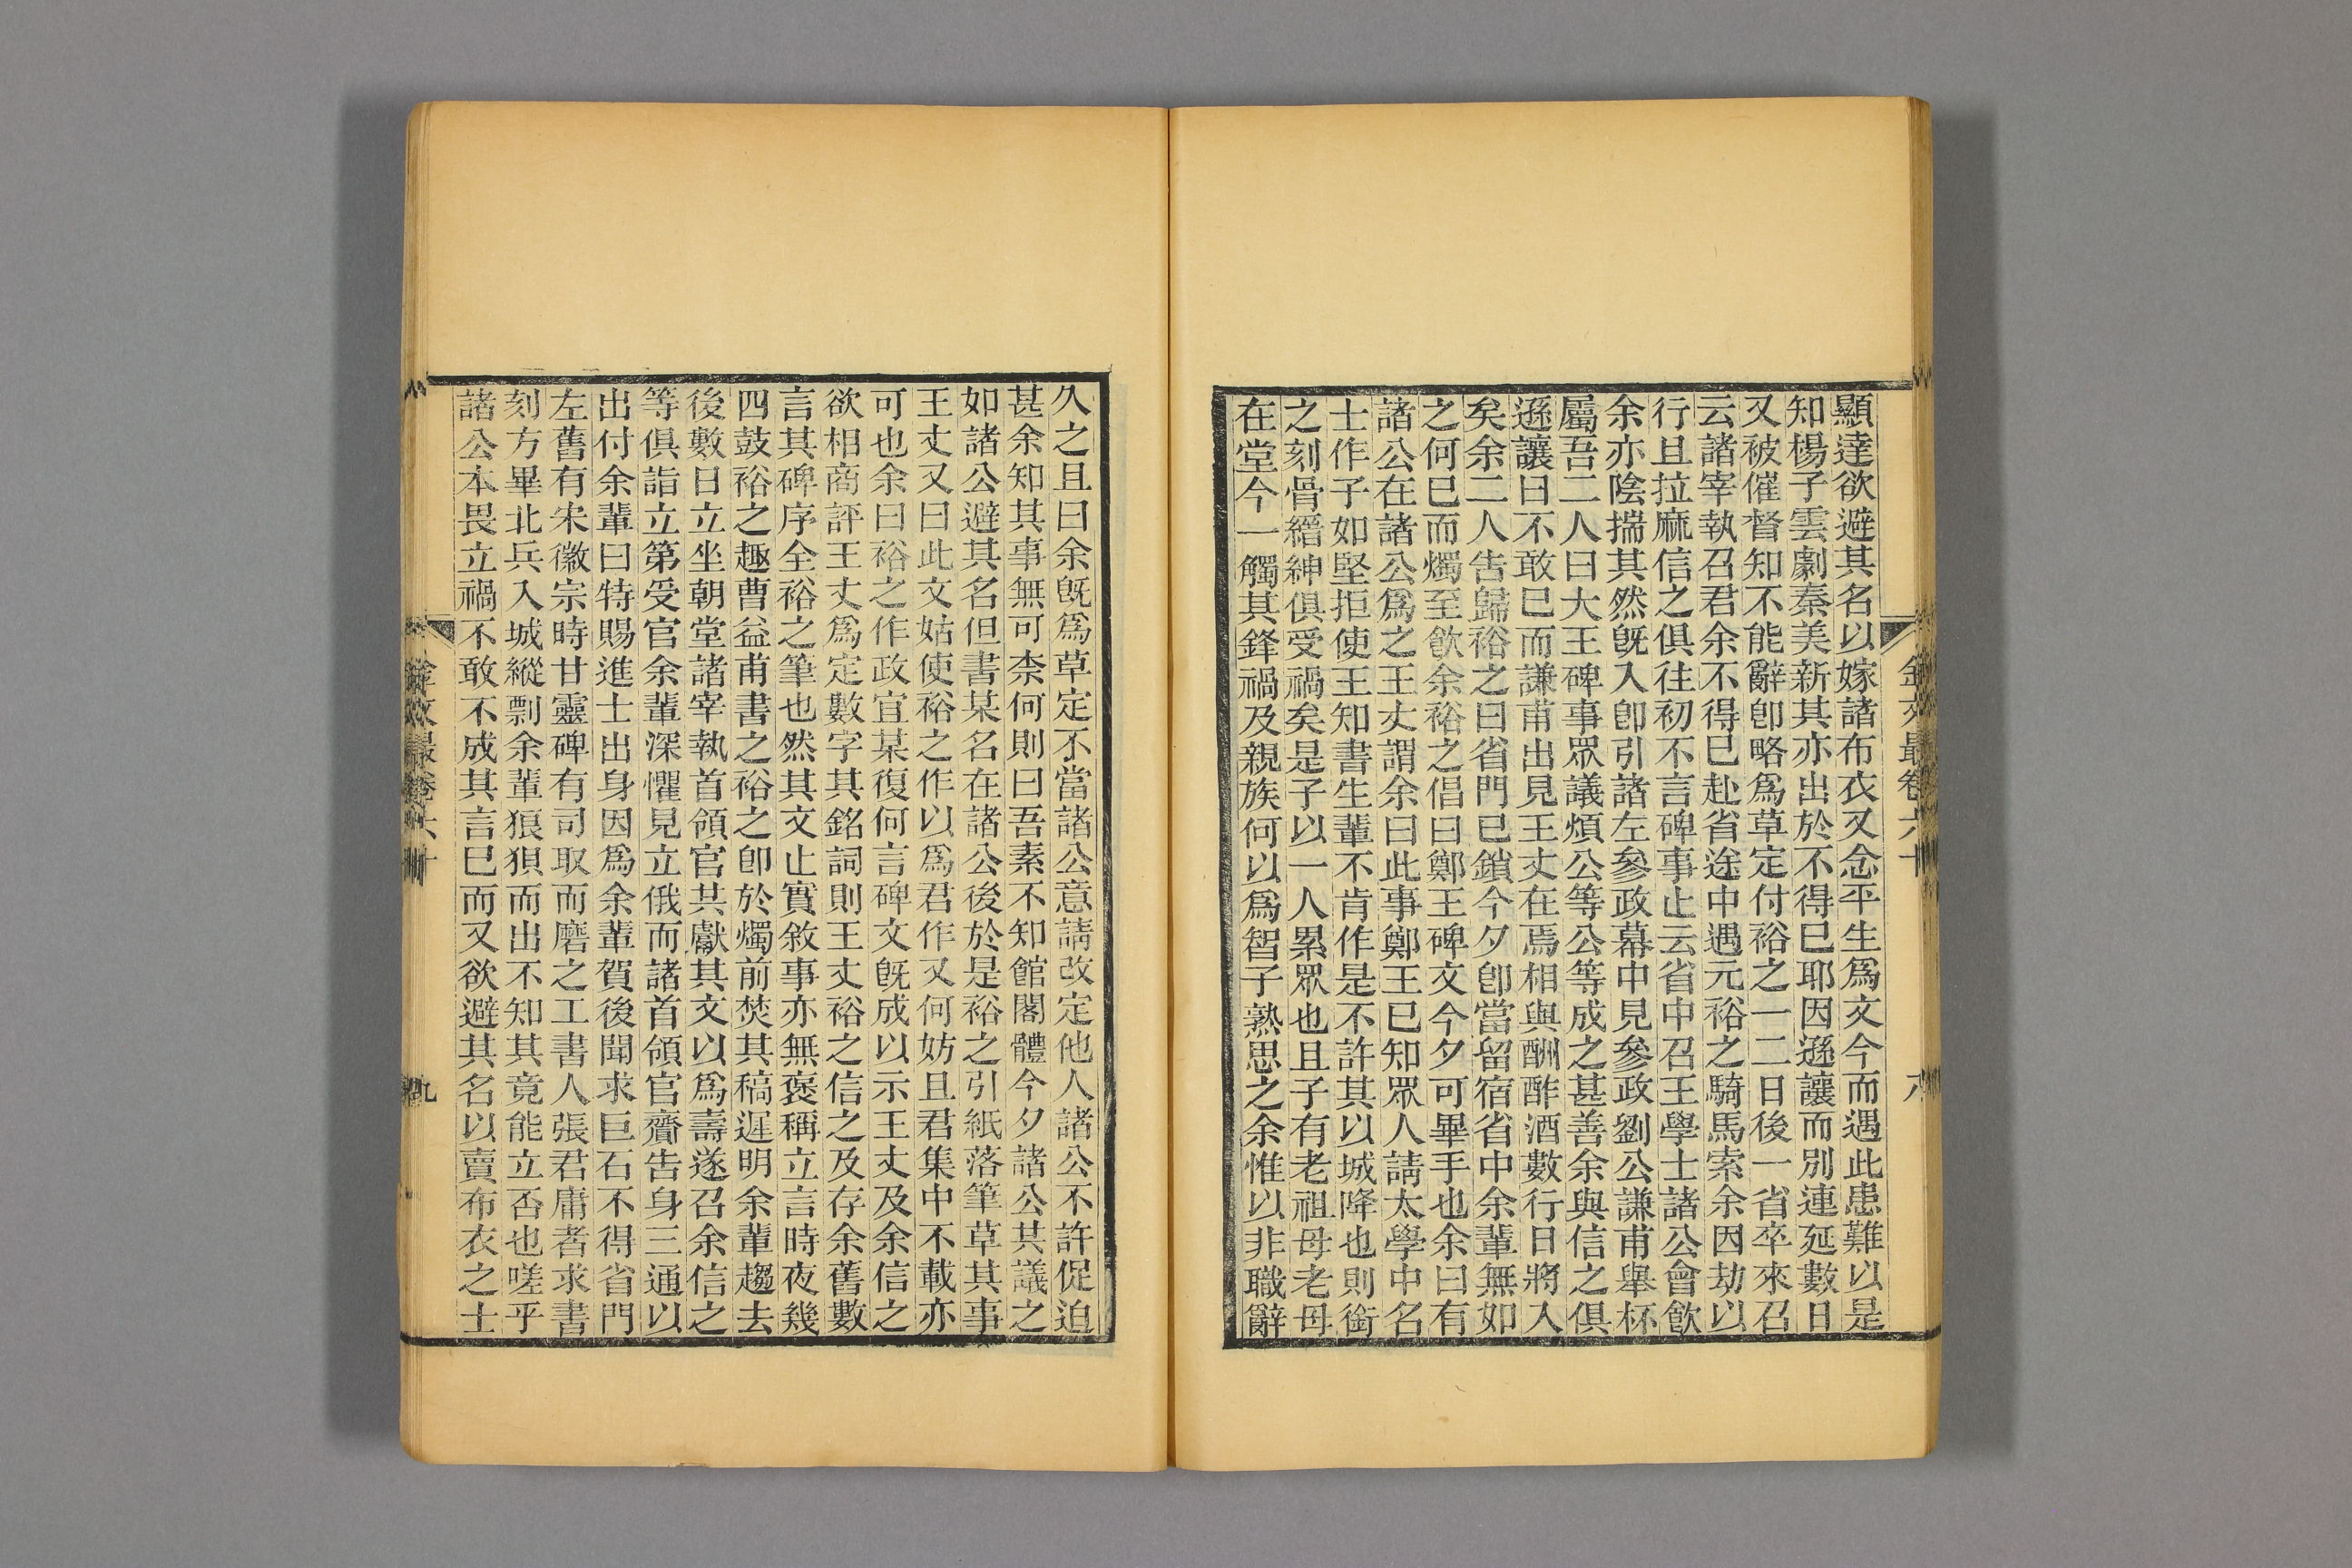 顯達欲避其名以嫁諸布衣又念平生爲文今而遇此患難以是
知楊子雲劇秦美新其亦出於不得已耶因遜讓而別連延數日
又被催督知不能辭卽略爲草定付裕之一二日後一省卒來召
云諸宰執召君余不得已赴省途中遇元裕之騎馬索余因劫以
行且拉麻信之俱往初不言碑事止云省中召王學士諸公會飮
余亦陰揣其然旣入卽引諸左參政幕中見參政劉公謙甫舉杯
屬吾二人曰大王碑事眾議煩公等公等成之甚善余與信之俱
遜讓曰不敢已而謙甫出見王丈在焉相與酬酢酒數行日將入
矣余二人告歸裕之曰省門已鎖今夕卽當留宿省中余輩無如
之何已而燭至飮余裕之倡曰鄭王碑文今夕可畢手也余曰有
諸公在諸公爲之王丈謂余曰此事鄭王已知眾人請太學中名
士作子如堅拒使王知書生輩不肯作是不許其以城降也則銜
之刻骨縉紳俱受禍矣是子以一人累眾也且子有老祖母老母
在堂今一觸其鋒禍及親族何以爲智子熟思之余惟以非職辭
金文最卷六十
八
久之且曰余旣爲草定不當諸公意請改定他人諸公不許促迫
甚余知其事無可柰何則曰吾素不知館閣體今夕諸公共議之
如諸公避其名但書某名在諸公後於是裕之引紙落筆草其事
王丈又曰此文姑使裕之作以爲君作又何妨且君集中不載亦
可也余曰裕之作政宜某復何言碑文旣成以示王丈及余信之
欲相商評王丈爲定數字其銘詞則王丈裕之信之及存余舊數
言其碑序全裕之筆也然其文止實敘事亦無褒稱立言時夜幾
四鼓裕之趣曹益甫書之裕之卽於燭前焚其稿遲明余輩趨去
後數日立坐朝堂諸宰執首領官共獻其文以爲壽遂召余信之
等俱詣立第受官余輩深懼見立俄而諸首領官齎告身三通以
出付余輩曰特賜進士出身因爲余輩賀後聞求巨石不得省門
左舊有宋徽宗時甘靈碑有司取而磨之工書人張君庸者求書
刻方畢北兵入城縱剽余輩狼狽而出不知其竟能立否也嗟乎
諸公本畏立禍不敢不成其言已而又欲避其名以賣布衣之士
金文最卷六十
九